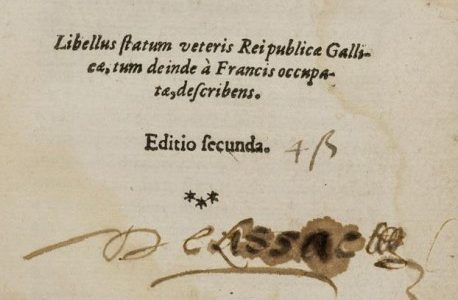 Libellus ſtatum veteris Reipublicæ Galli-
cæ, tum deinde à Francis occupa-
tæ, deſcribens.
Editio ſecunda.